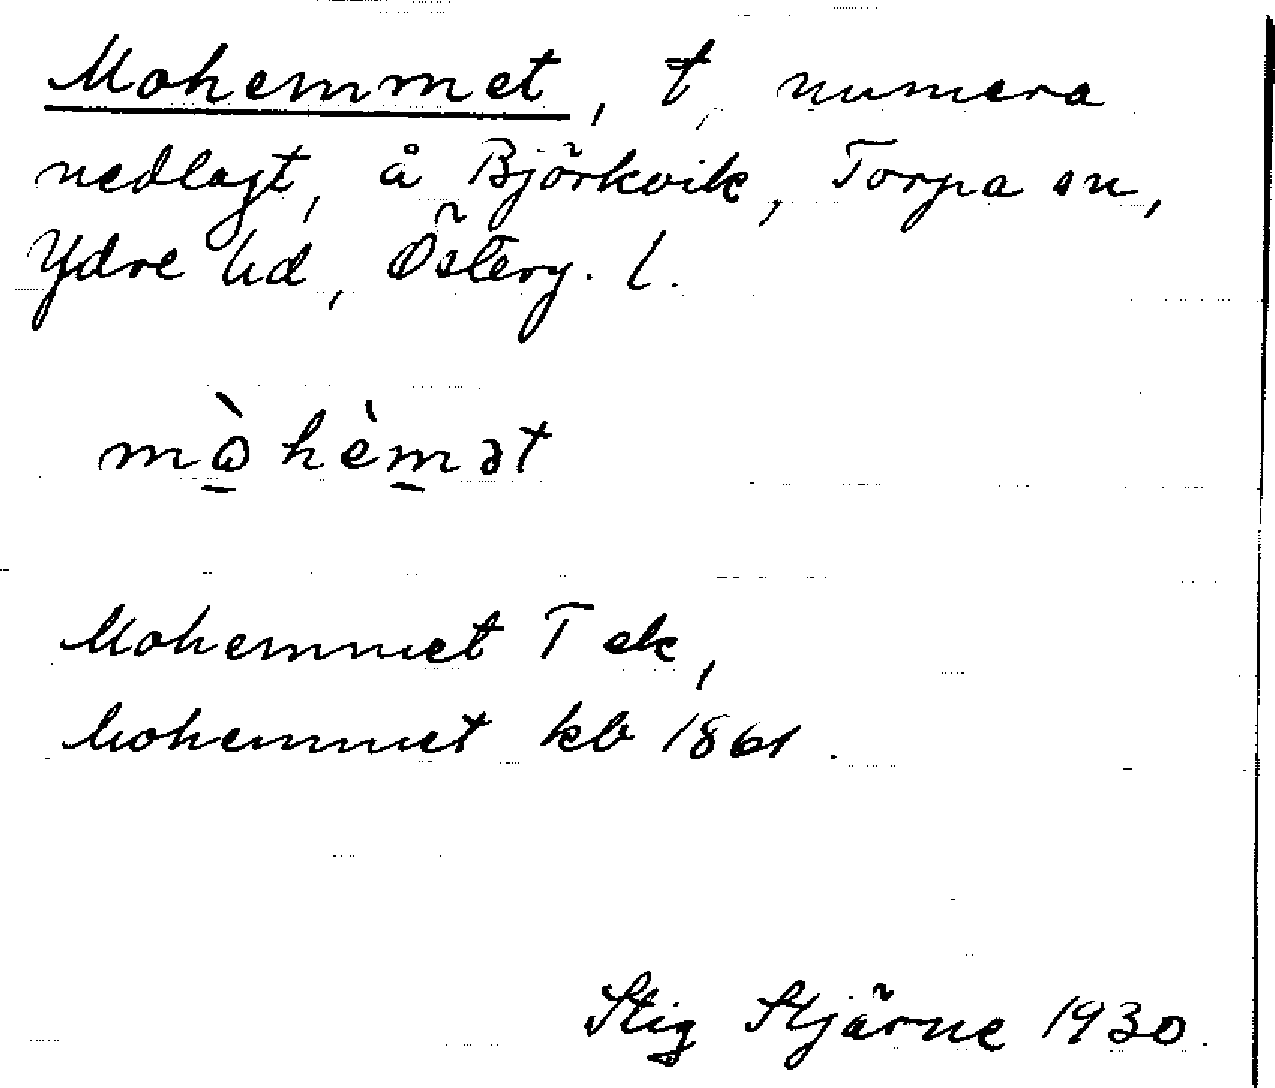 Mohemmet, t, numera
nedlagt, å Björkvik, Torpa sn,
Ydre hd, Österg. l.
mò̱hèm̱ət
Mohemmet T ek,
Mohemmet kb 1861.
Stig Stjärne 1930.